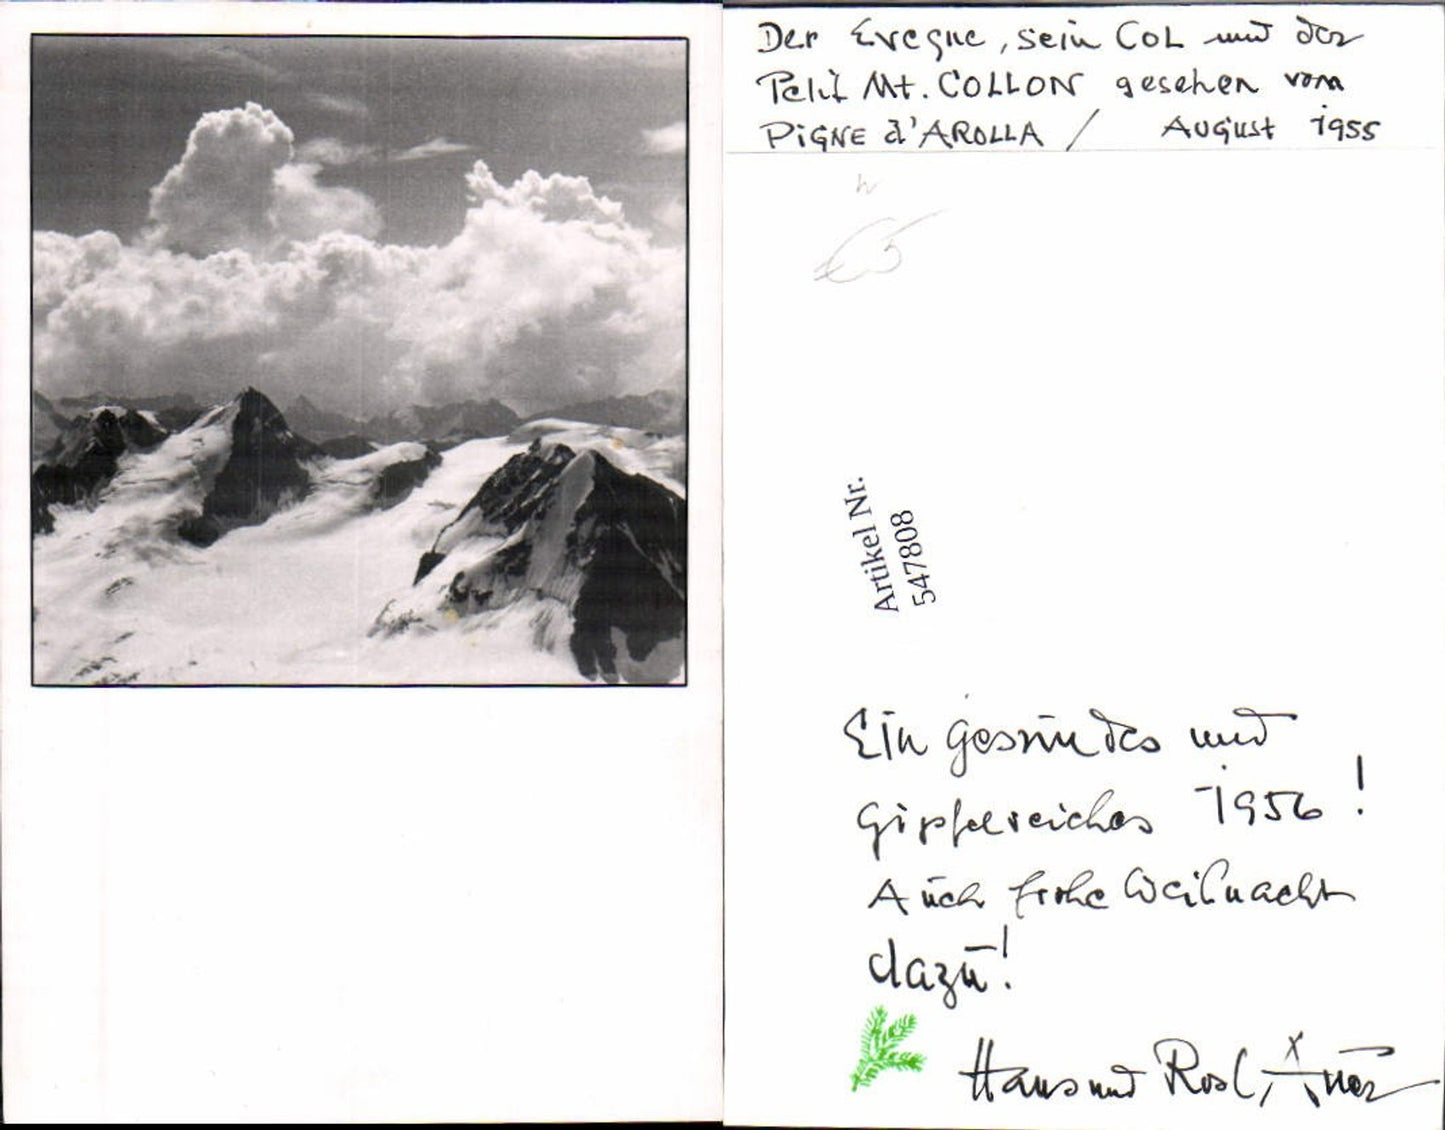 Der Evegne, sein COL und der
Petit Mt. COLLON gesehen vom
PIGNE d'AROLLA / AUGUST 1955
Artikel Nr.
547808
Ein gesundes und
Gipfelreiches 1956!
Auch frohe Weihnacht
dazu!
Hans und Rosl